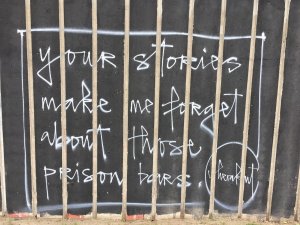 your stories
make me forget
about those
prison bars.